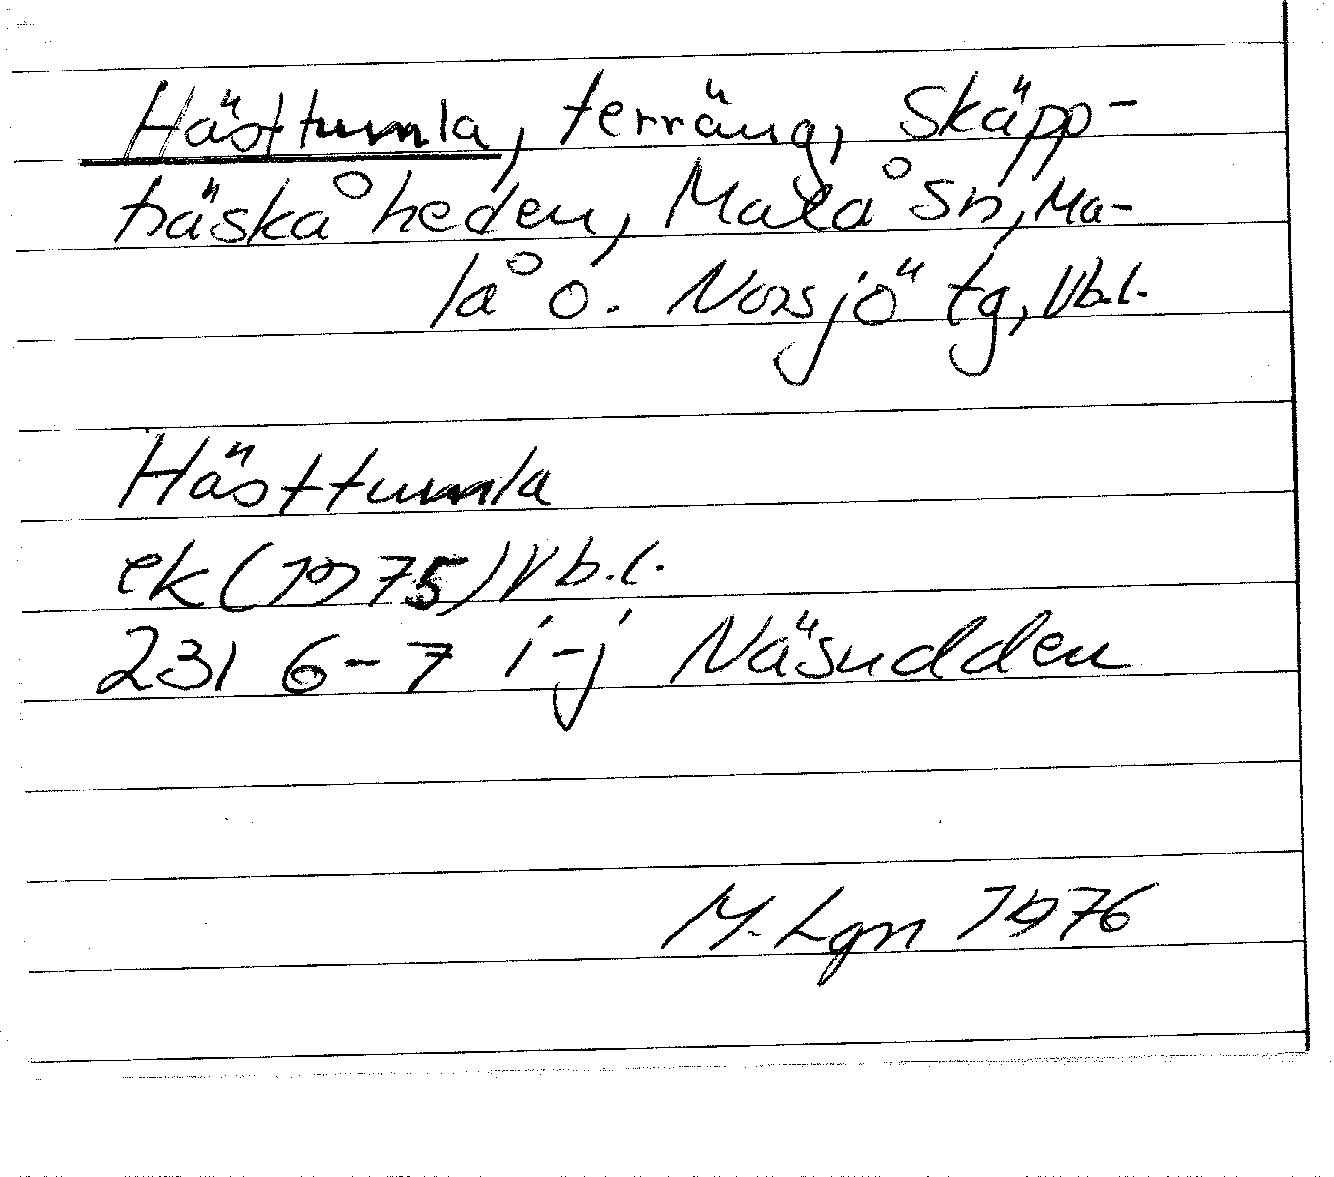 Hästtumla, terräng, Skäpp-
träskåheden, Malå sn, Ma-
lå o. Norsjö tg, Vb.l.
Hästtumla
ek (1975) Vb.l.
231 6-7 i-j Näsudden
M. Lgn 1976